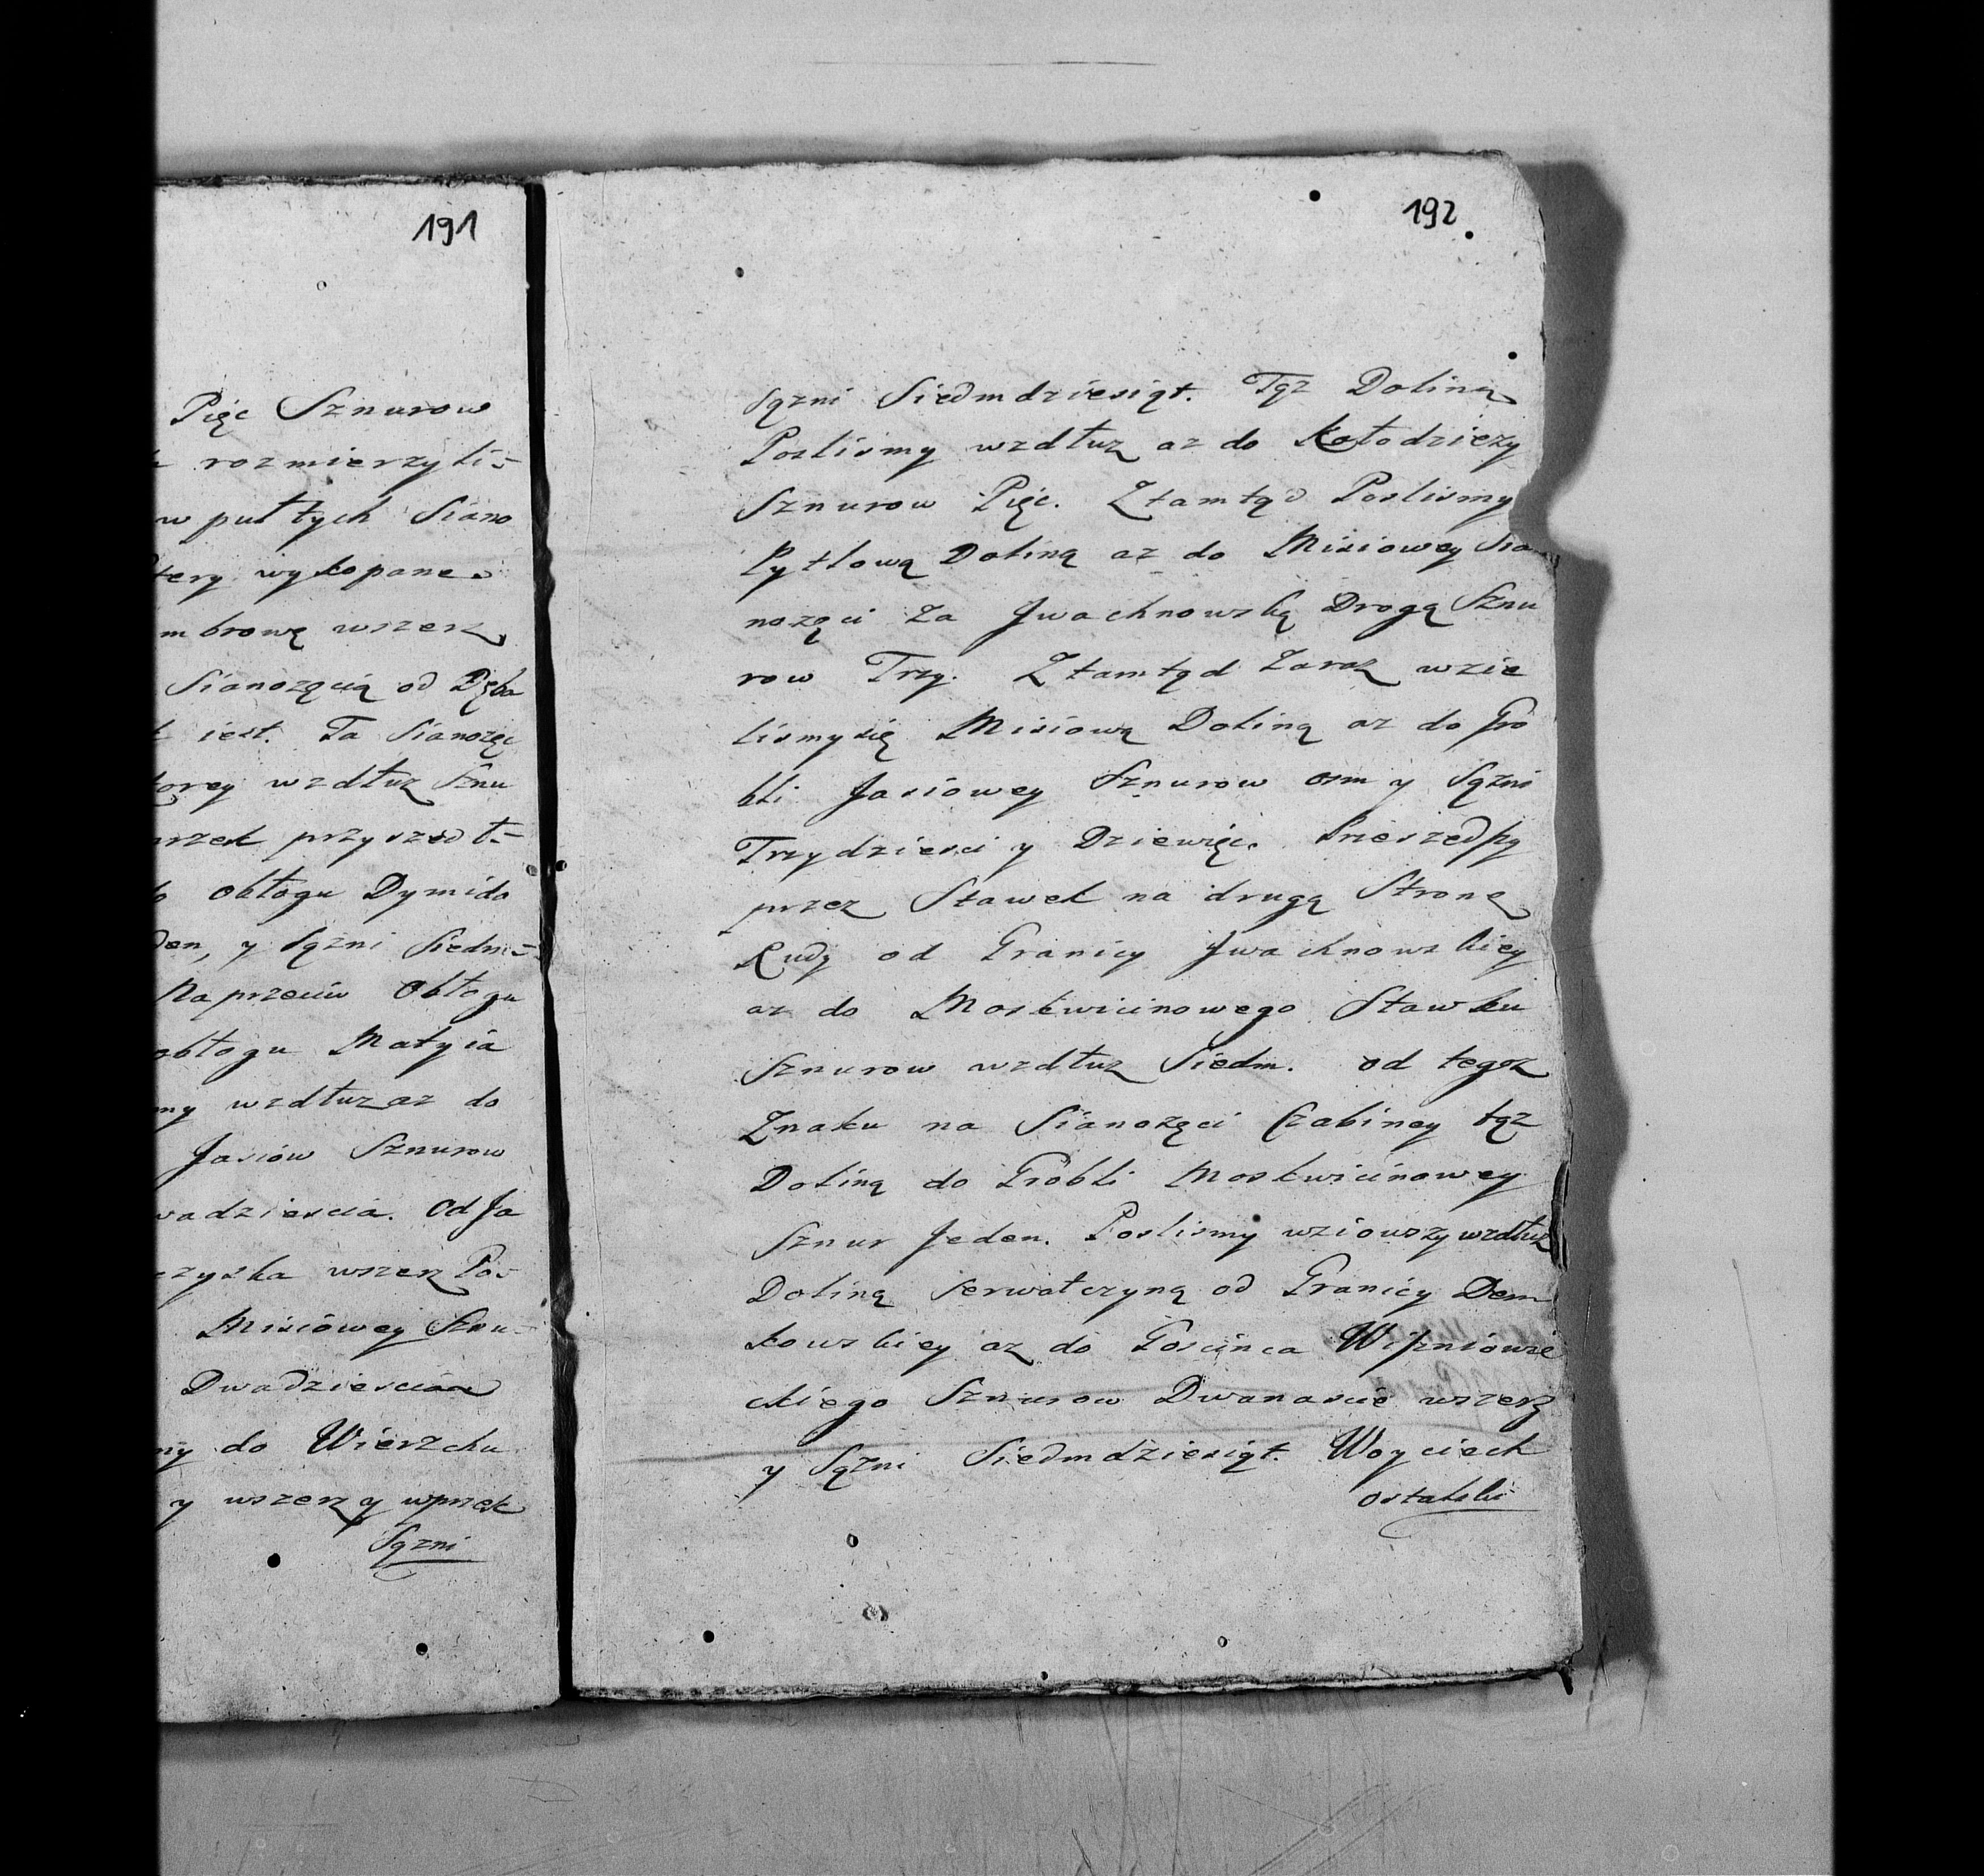 191
Pięc Sznurow
rozmierzyli-
w pułtych Siano
tery wykopane
mbrowę wszerz
Sianozęcią od Dęba
iest. Ta Sianozęc
torey wzdłuz Sznu
przyszedł-
obłogu Dymida
den, y Sązni Siedm-
Naprzeciw Obłogu
obłogu Matyia
my wzdłuz az do
Jasiow Sznurow
wadziescia. Od Ja
czyska wszerz Pos-
Misiowey Sznu-
Dwadziescia
my do Wierzchu
y wszerz y wprzek
Sązni
192
Sązni Siedmdziesiąt. Tąz Doliną
Poslismy wzdłuz az do Kołodziezy
Sznurow Pięc. Ztamtąd Poslismy
Pytlową Doliną az do Misiowey Sia
nozęci Za Jwachnowską Drogą Sznu
row Trzy. Ztamtąd Zaraz wzie
lismy się Misiową Doliną az do Gro
bli Jasiowey Sznurow osm y Sązni
Trzydziesci y Dziewięc. Przeszedszy
przez Stawek na drugą Stronę
Rudy od Granicy Jwachnowskiey
az do Moskwicinowego Stawku
Sznurow wzdłuz Siedm. od tegoz
Znaku na Sianozęci Czabiney tąz
Doliną do Grobli Moskwicinowey
Sznur Jeden. Poslismy wziowszy wzdłuz
Doliną Serwatczyną od Granicy Dem
kowskiey az do Goscinca Wiszniowie
ckiego Sznurow Dwanascie wszerz
y Sązni Siedmdziesiąt. Woyciech
Ostalski